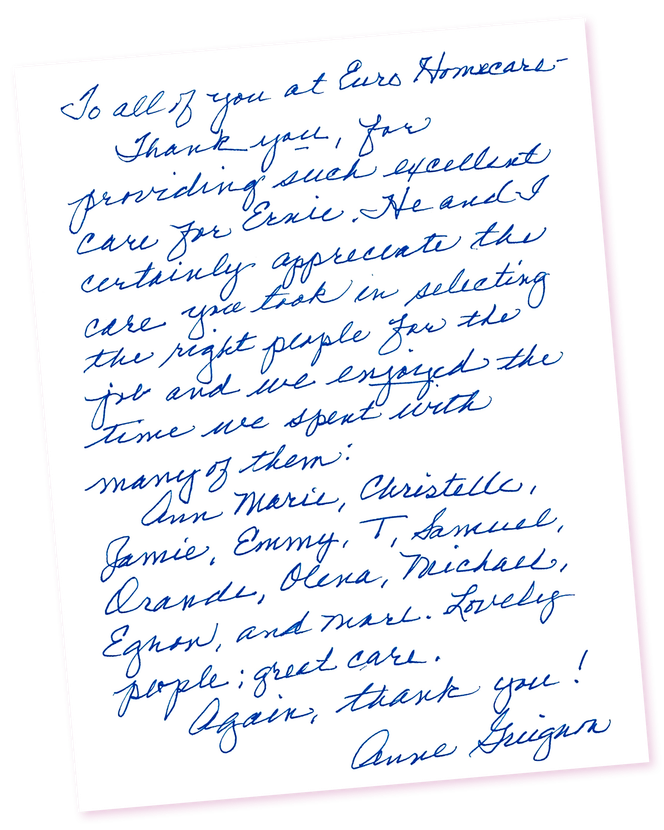 To all of you at Euro Homecare-
Thank you, for
providing such excellent
care for Ernie. He and I
certainly appreciate the
care you took in selecting
the right people for the
job and we enjoyed the
time we spent with
many of them:
Ann Marie, Christelle,
Jamie, Emmy, T, Samuel,
Orande, Olena, Michael,
Egnon, and more. Lovely
people; great care.
Again, thank you!
Anne Guignon